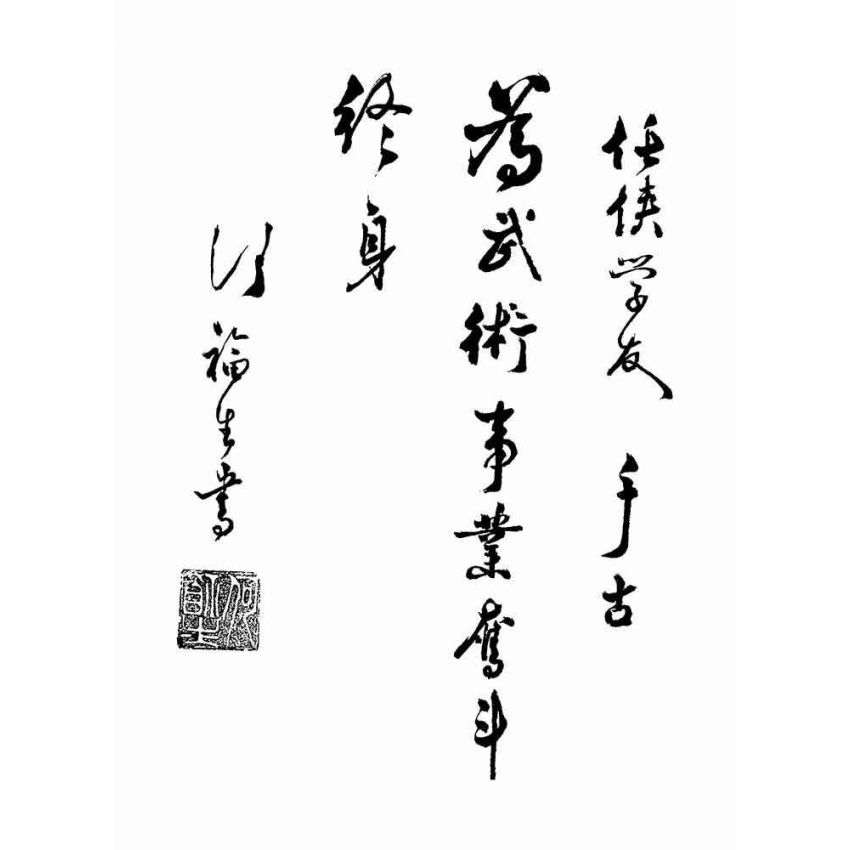 任侠学友 千古
為武術事業奮斗
終身
福生書